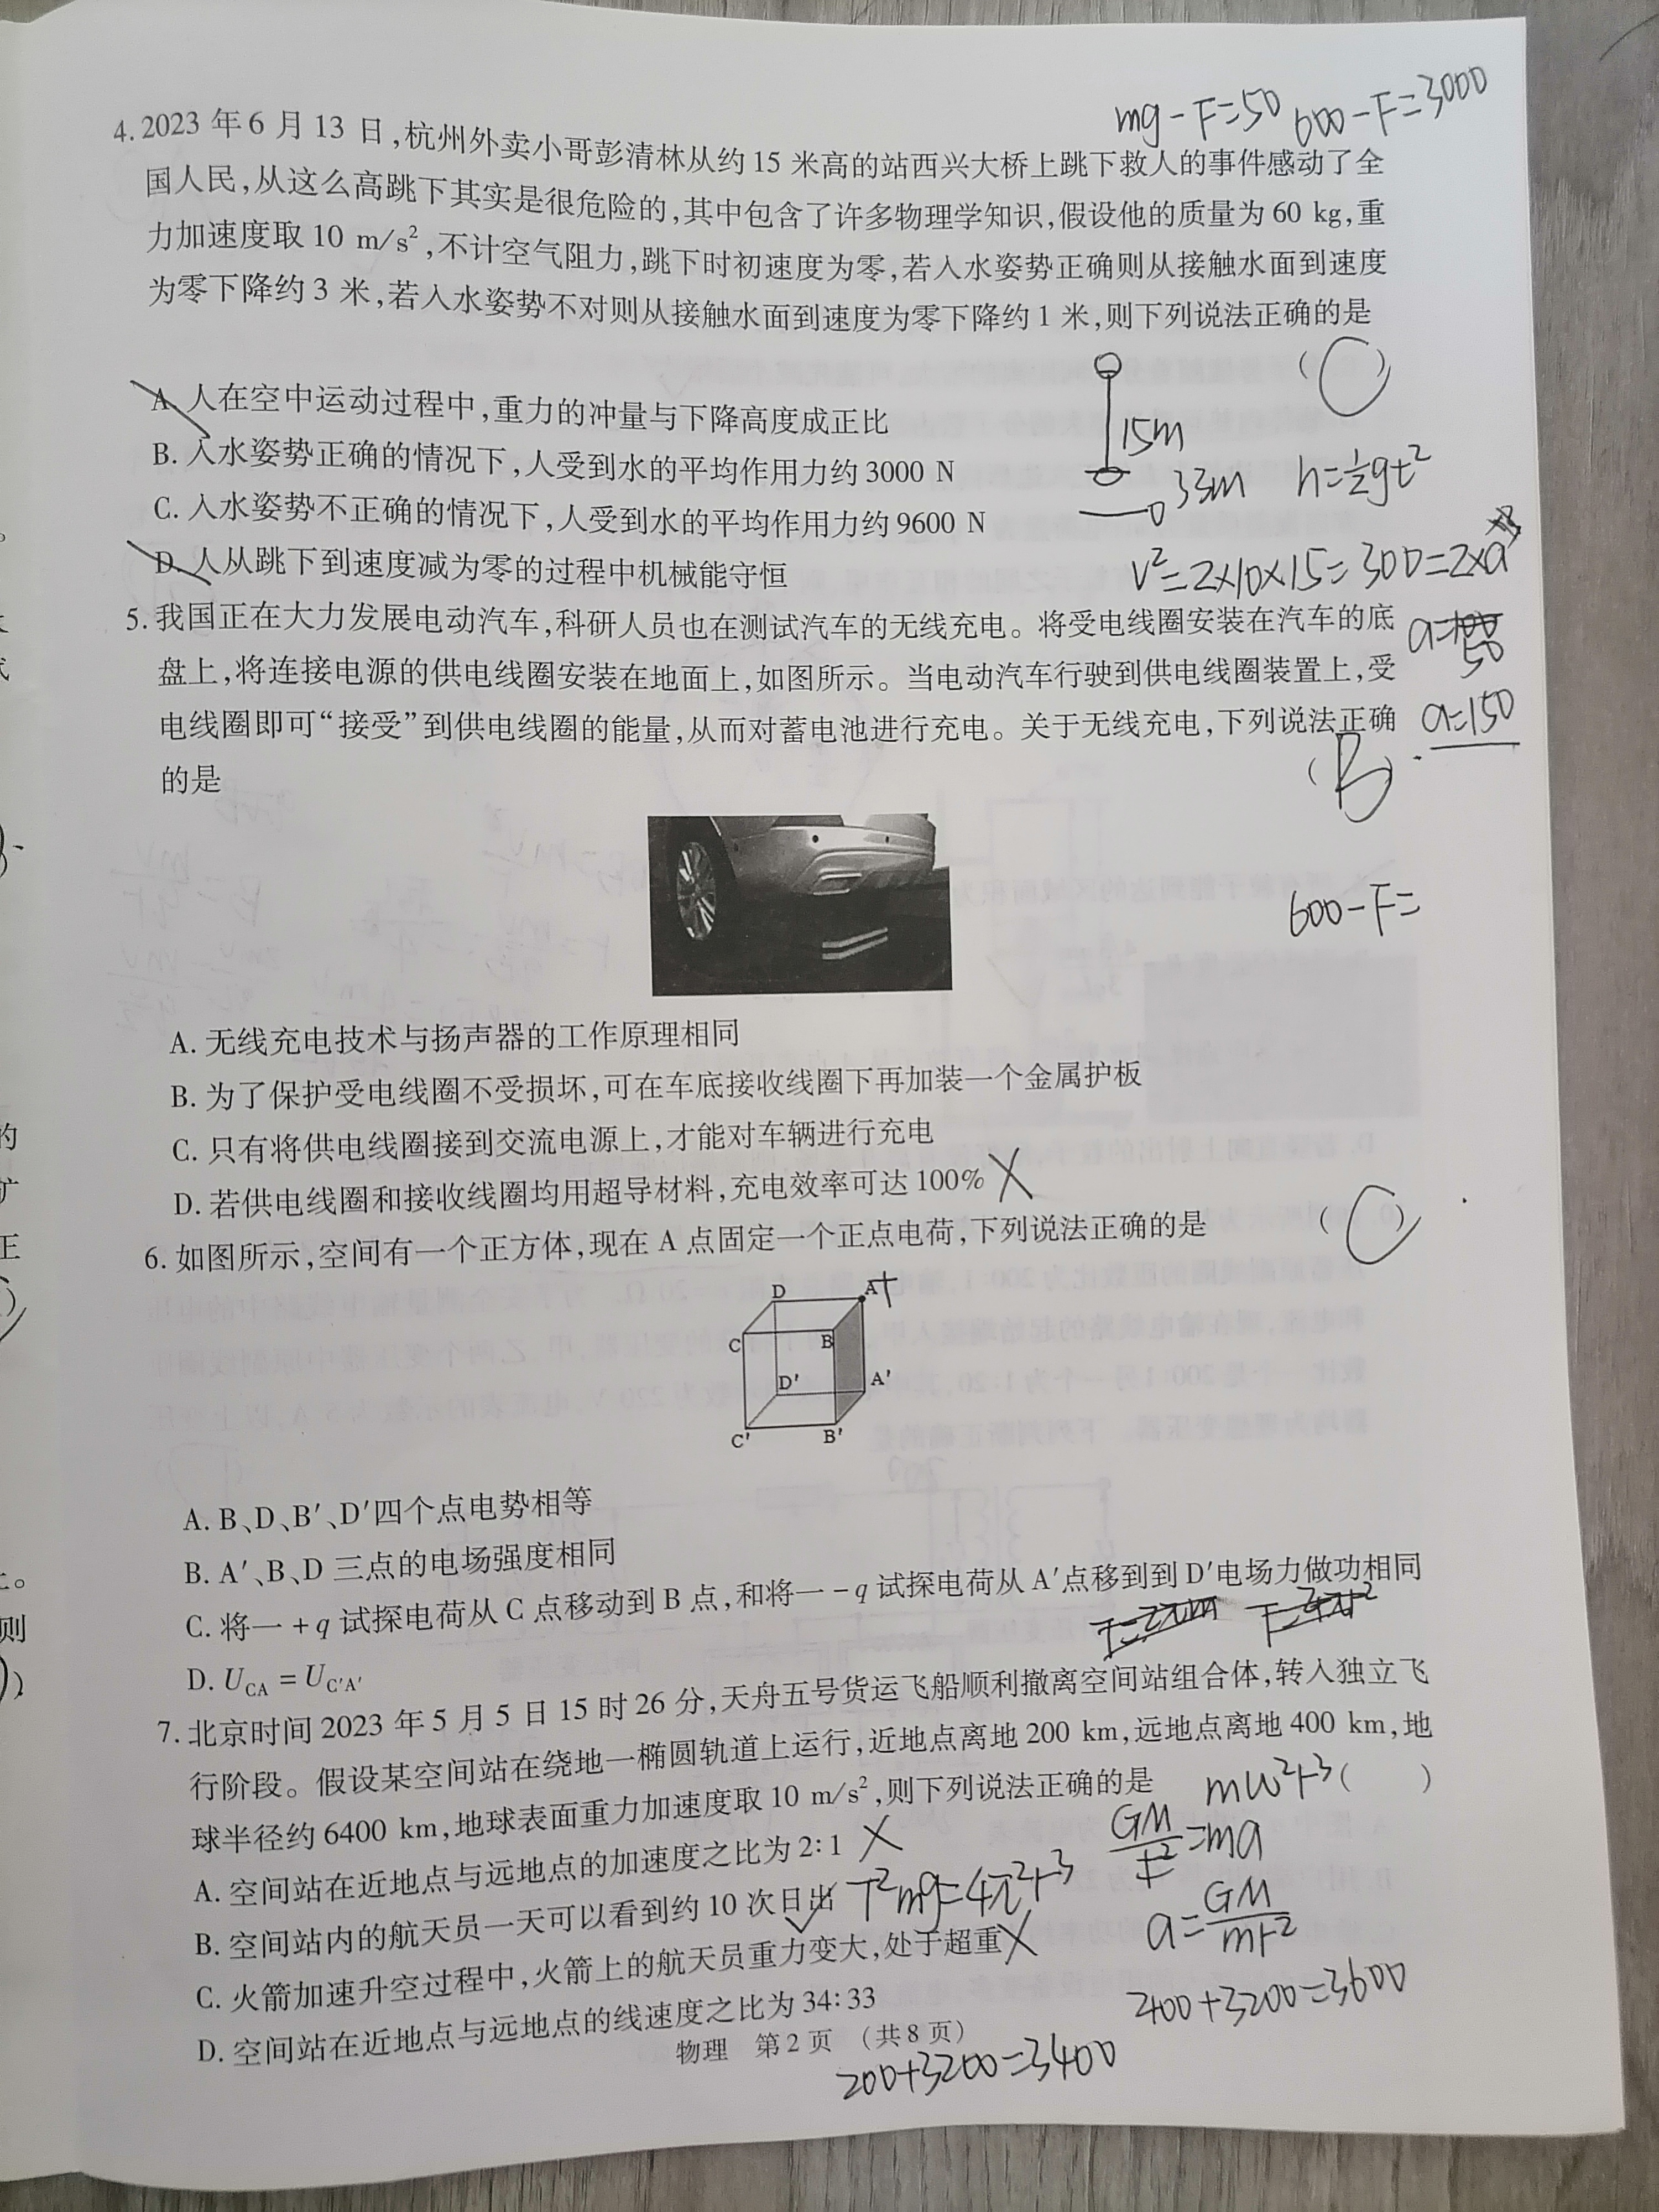 mg-F=50 600-F=3000
4. 2023 年 6 月 13 日,杭州外卖小哥彭清林从约 15 米高的站西兴大桥上跳下救人的事件感动了全
国人民,从这么高跳下其实是很危险的,其中包含了许多物理学知识,假设他的质量为 60 kg,重
力加速度取 10 m/s²,不计空气阻力,跳下时初速度为零,若入水姿势正确则从接触水面到速度
为零下降约 3 米,若入水姿势不对则从接触水面到速度为零下降约 1 米,则下列说法正确的是
( C )
A. 人在空中运动过程中,重力的冲量与下降高度成正比
B. 入水姿势正确的情况下,人受到水的平均作用力约 3000 N
15m
C. 入水姿势不正确的情况下,人受到水的平均作用力约 9600 N
33m h=½gt²
D. 人从跳下到速度减为零的过程中机械能守恒
v²=2×10×15=300=2×a
5. 我国正在大力发展电动汽车,科研人员也在测试汽车的无线充电。将受电线圈安装在汽车的底
a=
50
盘上,将连接电源的供电线圈安装在地面上,如图所示。当电动汽车行驶到供电线圈装置上,受
电线圈即可“接受”到供电线圈的能量,从而对蓄电池进行充电。关于无线充电,下列说法正确
a=150
的是
( B )
600-F=
A. 无线充电技术与扬声器的工作原理相同
B. 为了保护受电线圈不受损坏,可在车底接收线圈下再加装一个金属护板
C. 只有将供电线圈接到交流电源上,才能对车辆进行充电
D. 若供电线圈和接收线圈均用超导材料,充电效率可达 100% ×
6. 如图所示,空间有一个正方体,现在 A 点固定一个正点电荷,下列说法正确的是 ( C )
D A +
C B
D′ A′
C′ B′
A. B、D、B′、D′四个点电势相等
B. A′、B、D 三点的电场强度相同
C. 将一 +q 试探电荷从 C 点移动到 B 点,和将一 -q 试探电荷从 A′点移到到 D′电场力做功相同
D. U_CA = U_C′A′
7. 北京时间 2023 年 5 月 5 日 15 时 26 分,天舟五号货运飞船顺利撤离空间站组合体,转入独立飞
行阶段。假设某空间站在绕地一椭圆轨道上运行,近地点离地 200 km,远地点离地 400 km,地
球半径约 6400 km,地球表面重力加速度取 10 m/s²,则下列说法正确的是 ( )
mω²r³
A. 空间站在近地点与远地点的加速度之比为 2∶1 ×
GM/r²=ma
B. 空间站内的航天员一天可以看到约 10 次日出 ✓
T²mg=4π²r³
a=GM/mr²
C. 火箭加速升空过程中,火箭上的航天员重力变大,处于超重 ×
D. 空间站在近地点与远地点的线速度之比为 34∶33
400+3200=3600
物理 第 2 页 (共 8 页)
200+3200=3400